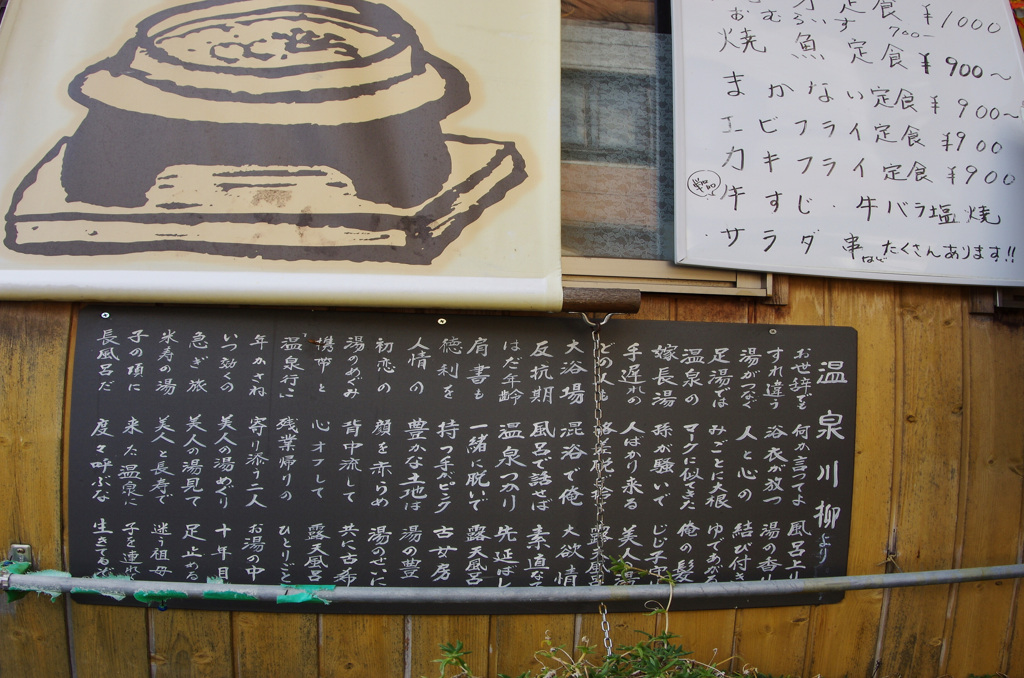 おむらいす 700-
定食 ¥1000
焼魚定食 ¥900〜
まかない定食 ¥900〜
エビフライ定食 ¥900
カキフライ定食 ¥900
牛すじ・牛バラ塩焼
・サラダ 串などたくさんあります!!
温泉川柳より
お世辞でも 何か言ってよ 風呂上り
すれ違う 浴衣が放つ 湯の香り
湯がつなぐ 人と心の 結び付き
足湯では みごとに大根 ゆであがる
温泉の マークに似てきた 俺の髪
嫁長湯 孫が騒いで じじ子守
手遅れの 人ばかり来る 美人湯
どの人も
大浴場 混浴で俺 大欲情
反抗期 風呂で話せば 素直な
はだ年齢 温泉つかり 先延ばし
肩書も 一緒に脱いで 露天風呂
徳利を 持つ手がピンク 古女房
人情の 豊かな土地は 湯の豊
初恋の 顔を赤らめ 湯のせいに
湯のめぐみ 背中流して 共に古希
携帯と 心オフして 露天風呂
温泉行い 残業帰りの ひとりごと
年かさね 寄り添う二人 お湯の中
いつ効くの 美人の湯めぐり 十年目
急ぎ旅 美人の湯見て 足止める
米寿の湯 美人と長寿で 迷う祖母
子の頃に 来た温泉に 子を連れ
長風呂だ 度々呼ぶな 生きてるぞ